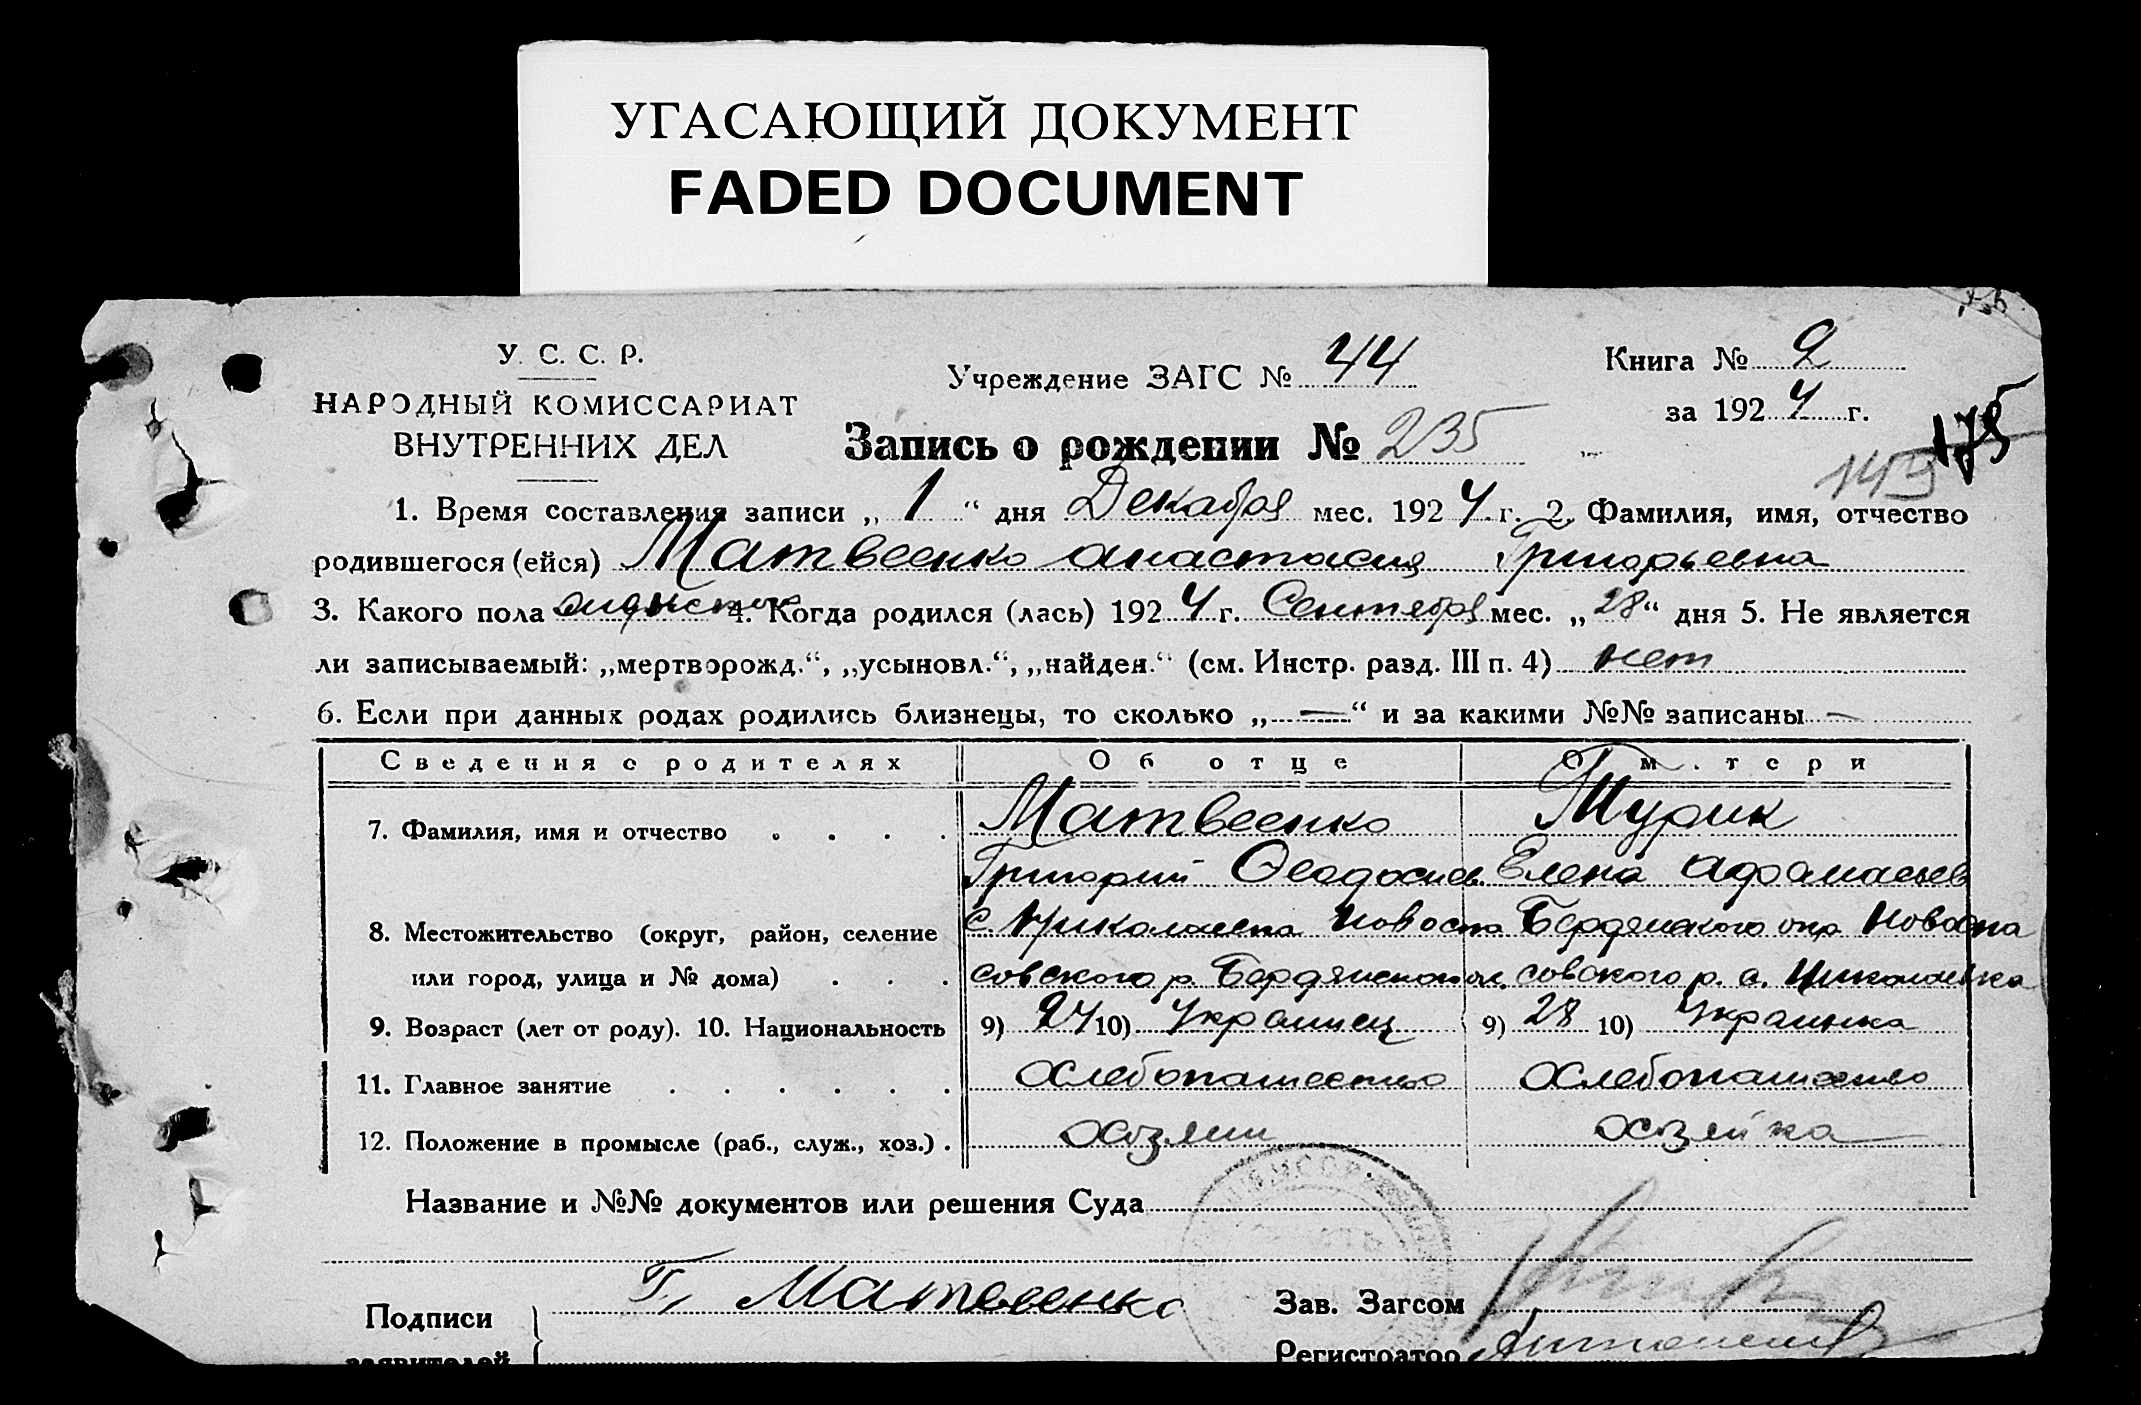 УГАСАЮЩИЙ ДОКУМЕНТ
FADED DOCUMENT
У. С. С. Р.
НАРОДНЫЙ КОМИССАРИАТ
ВНУТРЕННИХ ДЕЛ
Учреждение ЗАГС № 44
Книга № 2
за 1924 г.
Запись о рождении № 235
175
143
1. Время составления записи „1“ дня Декабря мес. 1924 г. 2. Фамилия, имя, отчество
родившегося (ейся) Матвеенко Анастасия Григорьевна
3. Какого пола женского 4. Когда родился (лась) 1924 г. Сентября мес. „28“ дня 5. Не является
ли записываемый: „мертворожд.“, „усыновл.“, „найден.“ (см. Инстр. разд. III п. 4) нет
6. Если при данных родах родились близнецы, то сколько „—“ и за какими №№ записаны —
Сведения о родителях Об отце О м.тери
7. Фамилия, имя и отчество . . . . Матвеенко Турик
Григорий Феодосиев. Елена Афанасьев
8. Местожительство (округ, район, селение с. Николаевка Новоспа Бердянского окр. Новоспа
или город, улица и № дома) . . . совского р. Бердянского ок. совского р. с. Николаевка
9. Возраст (лет от роду). 10. Национальность 9) 24 10) Украинец 9) 28 10) Украинка
11. Главное занятие . . . . . . Хлебопашество Хлебопашество
12. Положение в промысле (раб., служ., хоз.) . Хозяин Хозяйка
Название и №№ документов или решения Суда
Подписи Г. Матвеенко Зав. Загсом
заявителей Регистратор